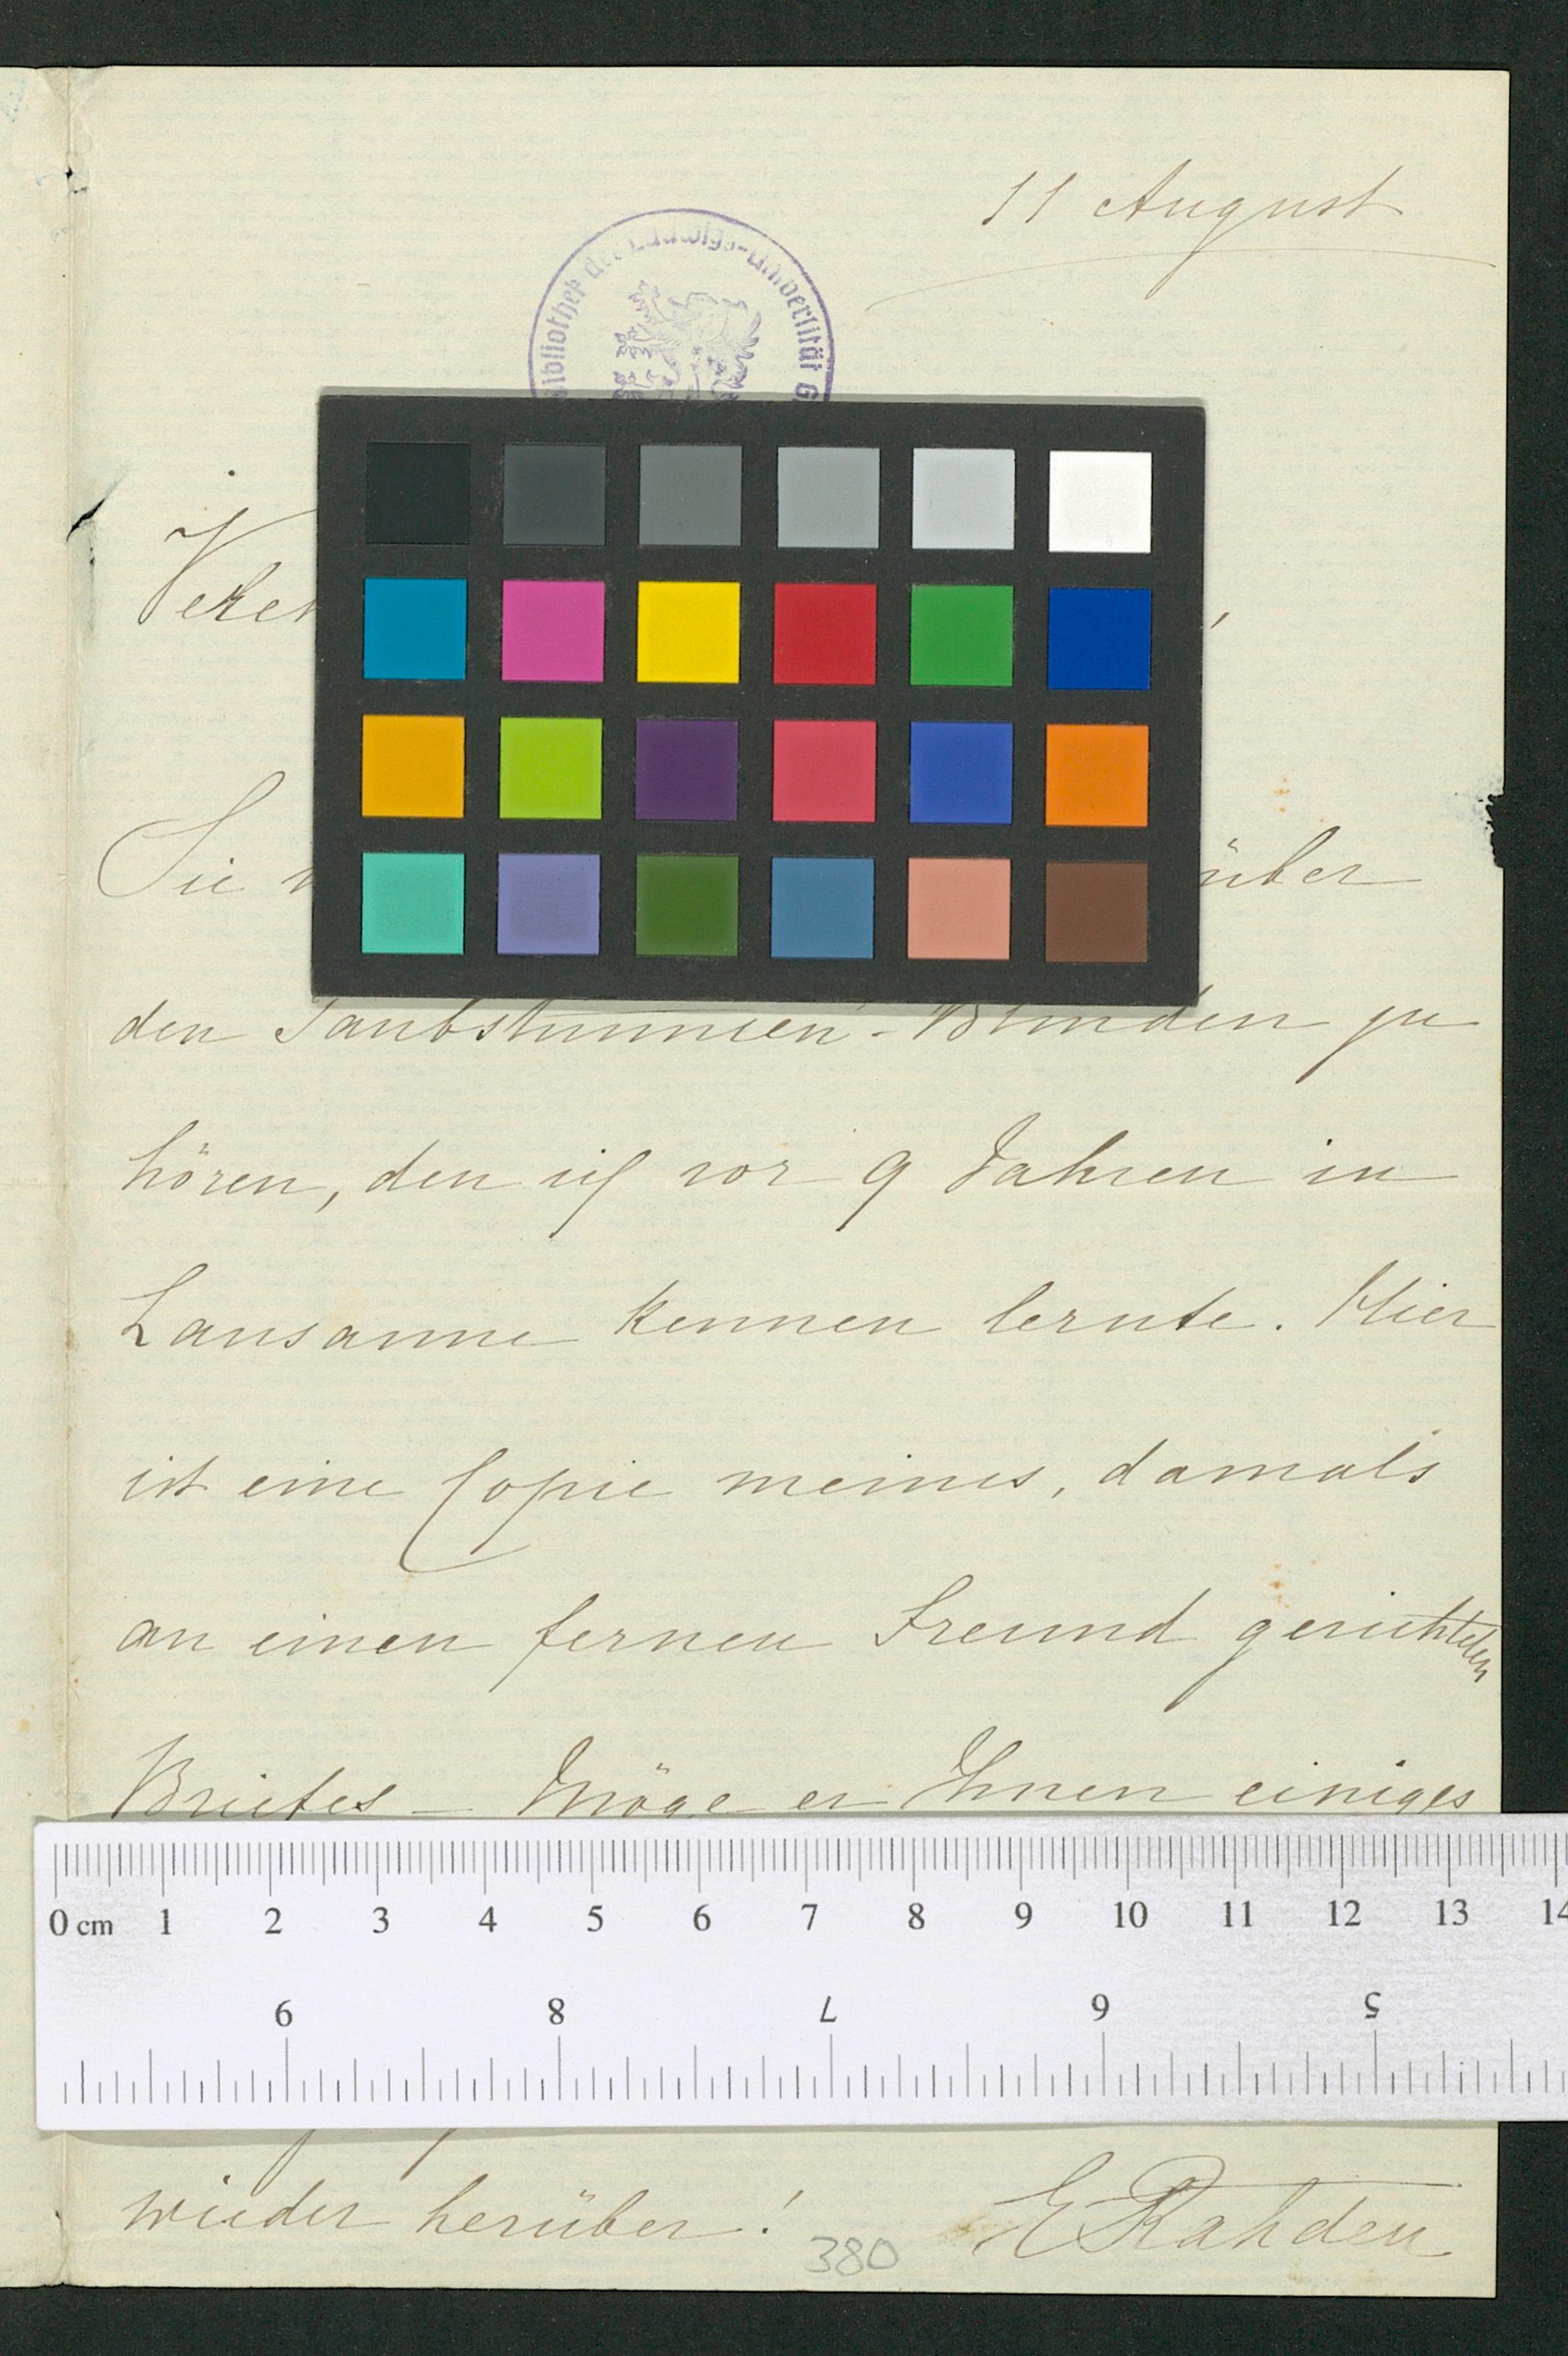 11 August
Bibliothek der Ludwigs-Universität G
Sie
über
den Taubstummen-Blinden zu
hören, den ich vor 9 Jahren in
Lausanne kennen lernte. Hier
ist eine Copie meines, damals
an einen fernen Freund gerichteten
Briefes – Möge er Ihnen einiges
0 cm 1 2 3 4 5 6 7 8 9 10 11 12 13 14
9 8 7 6 5
wieder herüber! ERahden
380